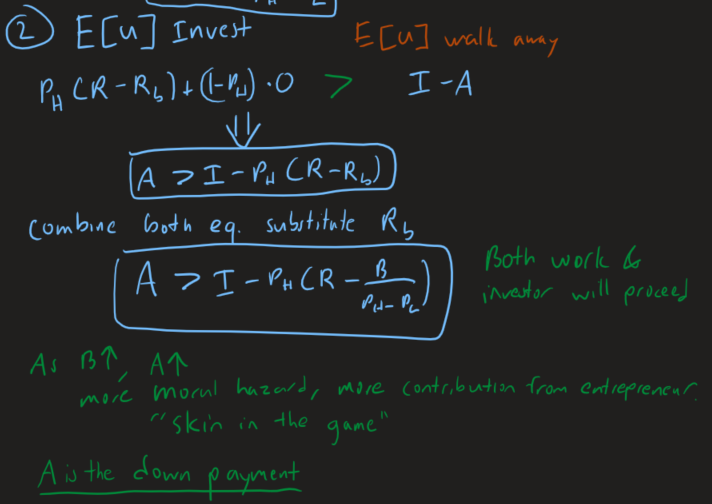 ② E[u] Invest
E[u] walk away
P_H (R - R_b) + (1-P_H) · 0 > I - A
⇓
A > I - P_H (R - R_b)
combine both eq. substitute R_b
A > I - P_H (R - B/(P_H - P_L))
Both work &
investor will proceed
As B↑, A↑
more moral hazard, more contribution from entrepreneur.
"skin in the game"
A is the down payment